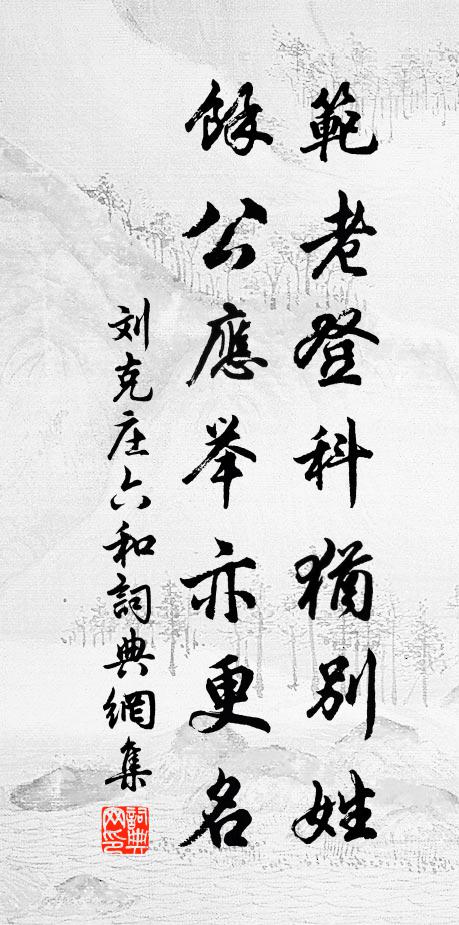 範老登科猶別姓
餘公應举亦更名
刘克庄六和詞典網集
詞典网印